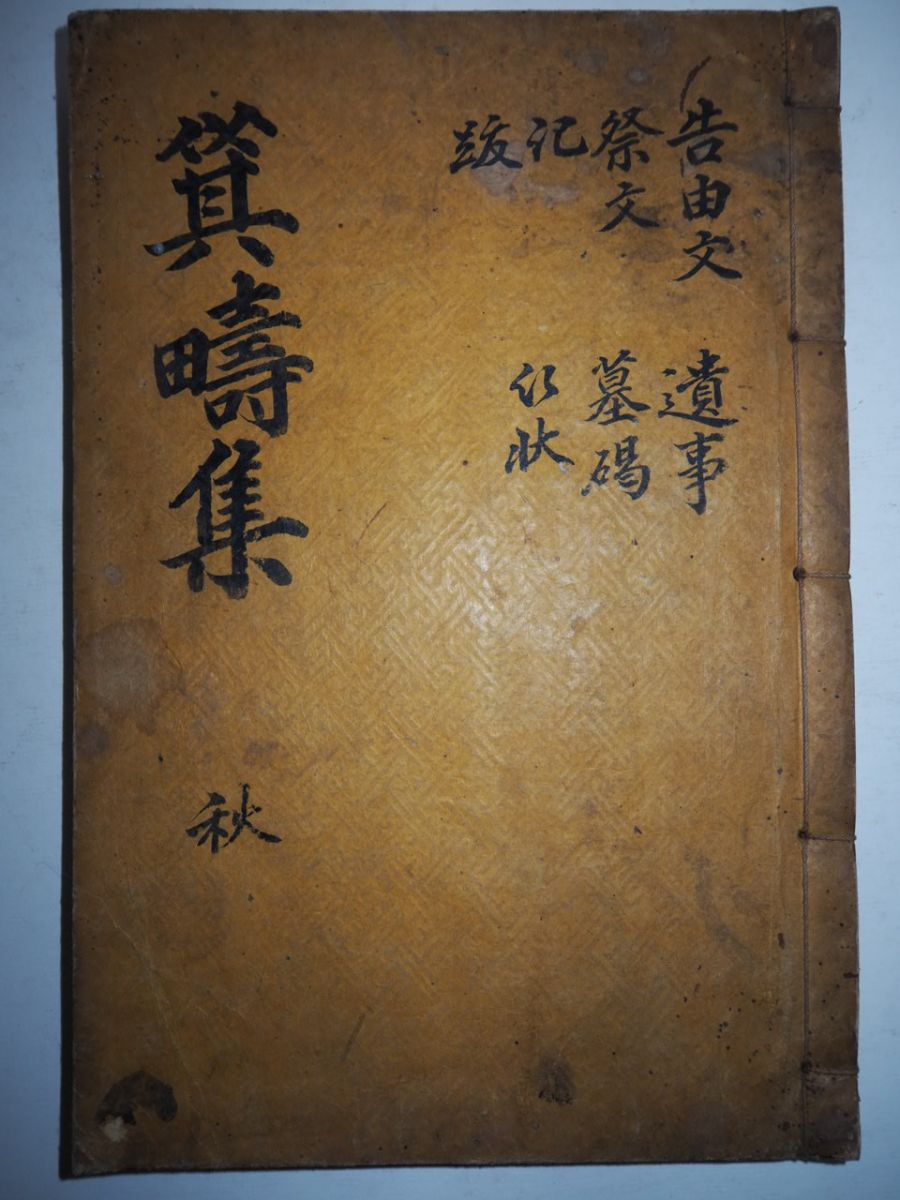 告由文
祭文
記
跋
遺事
墓碣
行狀
箕疇集
秋